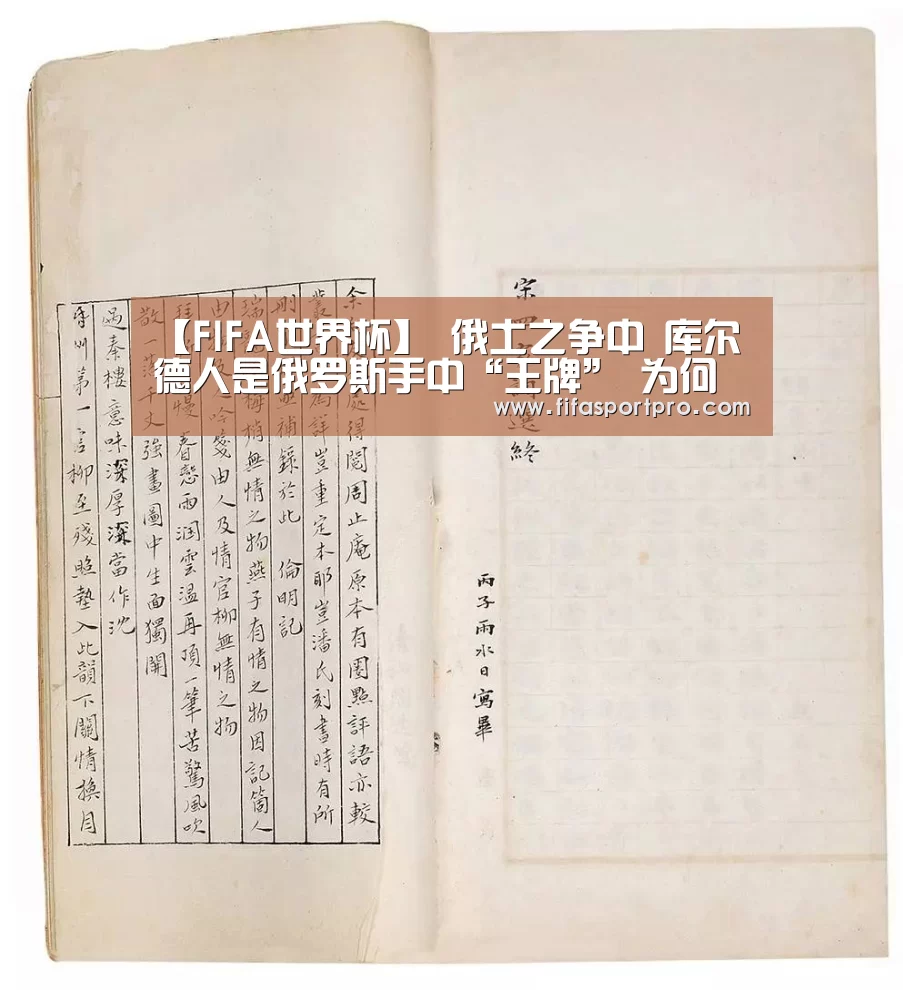 【FIFA世界杯】 俄土之争中 库尔
德人是俄罗斯手中“王牌” 为何
www.fifasportpro.com
宋四 選終
丙子雨水日寫畢
余 處得閱周止庵原本有圈點評語亦較
叢 為詳豈重定本耶豈潘氏刻書時有所
刪 補錄於此 倫明記
瑞 梅梢無情之物燕子有情之物因記箇人
由 及人吟箋由人及情官柳無情之物
慢 春戀雨潤雲溫再頓一筆苦驚風吹
散一落千丈強畫圖中生面獨開
過秦樓意味深厚深當作沈
第一言柳至殘照墊入此韻下關情換目